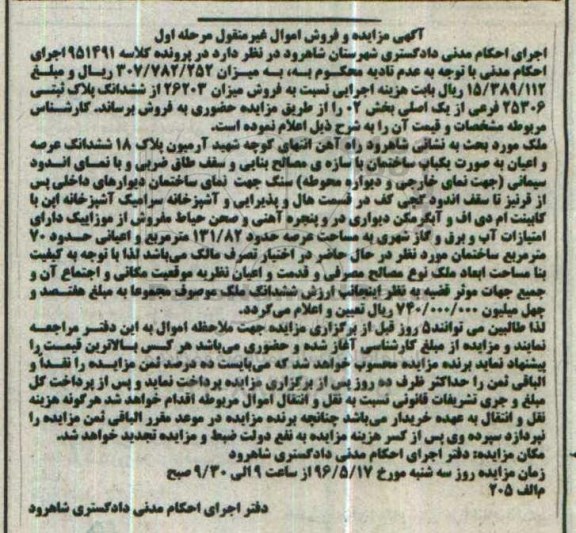 آگهی مزایده و فروش اموال غیرمنقول مرحله اول
اجرای احکام مدنی دادگستری شهرستان شاهرود در نظر دارد در پرونده کلاسه ۹۵۱۴۹۱ اجرای
احکام مدنی با توجه به عدم تادیه محکوم به، به میزان ۳۰۷/۷۸۲/۲۵۲ ریال و مبلغ
۱۵/۳۸۹/۱۱۲ ریال بابت هزینه اجرایی نسبت به فروش میزان ۲۶۲۰۳ از ششدانگ پلاک ثبتی
۲۵۳۰۶ فرعی از یک اصلی بخش ۰۲ را از طریق مزایده حضوری به فروش برساند. کارشناس
مربوطه مشخصات و قیمت آن را به شرح ذیل اعلام نموده است.
ملک مورد بحث به نشانی شاهرود راه آهن انتهای کوچه شهید آرمیون پلاک ۱۸ ششدانگ عرصه
و اعیان به صورت یکباب ساختمان با سازه ی مصالح بنایی و سقف طاق ضربی و با نمای اندود
سیمانی (جهت نمای خارجی و دیواره محوطه) سنگ جهت نمای ساختمان دیوارهای داخلی پس
از قرنیز تا سقف اندود گچی کف در قسمت هال و پذیرایی و آشپزخانه سرامیک آشپزخانه این با
کابینت ام دی اف و آبگرمکن دیواری در و پنجره آهنی و صحن حیاط مفروش از موزاییک دارای
امتیازات آب و برق و گاز شهری به مساحت عرصه حدود ۱۳۱/۸۲ مترمربع و اعیانی حدود ۷۰
مترمربع ساختمان مورد نظر در حال حاضر در اختیار تصرف مالک می‌باشد لذا با توجه به کیفیت
بنا مساحت ابعاد ملک نوع مصالح مصرفی و قدمت و اعیان نظریه موقعیت مکانی و اجتماع آن و
جمیع جهات موثر قضیه به نظر اینجانب ارزش ششدانگ ملک موصوف مجموعا به مبلغ هفتصد و
چهل میلیون ۷۴۰/۰۰۰/۰۰۰ ریال تعیین و اعلام می‌گردد.
لذا طالبین می توانند۵ روز قبل از برگزاری مزایده جهت ملاحظه اموال به این دفتر مراجعه
نمایند و مزایده از مبلغ کارشناسی آغاز شده و حضوری می‌باشد هر کس بالاترین قیمت را
پیشنهاد نماید برنده مزایده محسوب خواهد شد که می‌بایست ده درصد ثمن مزایده را نقداً و
الباقی ثمن را حداکثر ظرف ده روز پس از برگزاری مزایده پرداخت نماید و پس از پرداخت کل
مبلغ و جری تشریفات قانونی نسبت به نقل و انتقال اموال مربوطه اقدام خواهد شد هرگونه هزینه
نقل و انتقال به عهده خریدار می‌باشد چنانچه برنده مزایده در موعد مقرر الباقی ثمن مزایده را
نپردازد سپرده وی پس از کسر هزینه مزایده به نفع دولت ضبط و مزایده تجدید خواهد شد.
مکان مزایده: دفتر اجرای احکام مدنی دادگستری شاهرود
زمان مزایده روز سه شنبه مورخ ۹۶/۵/۱۷ از ساعت ۹ الی ۹/۳۰ صبح
م‌الف ۲۰۵
دفتر اجرای احکام مدنی دادگستری شاهرود